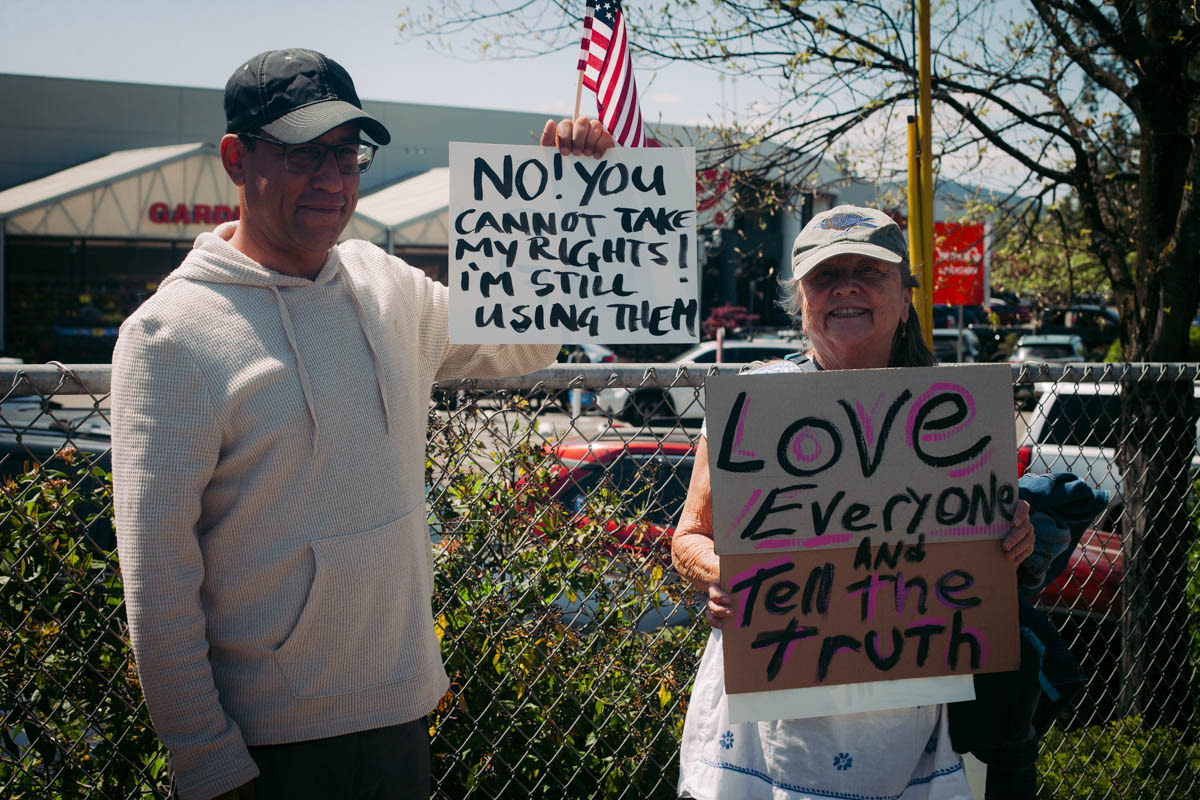 GARD
NO! YOU
CANNOT TAKE
MY RIGHTS!
i'M STILL
USING THEM
LOVe
EVeryONe
AND
Tell the
Truth